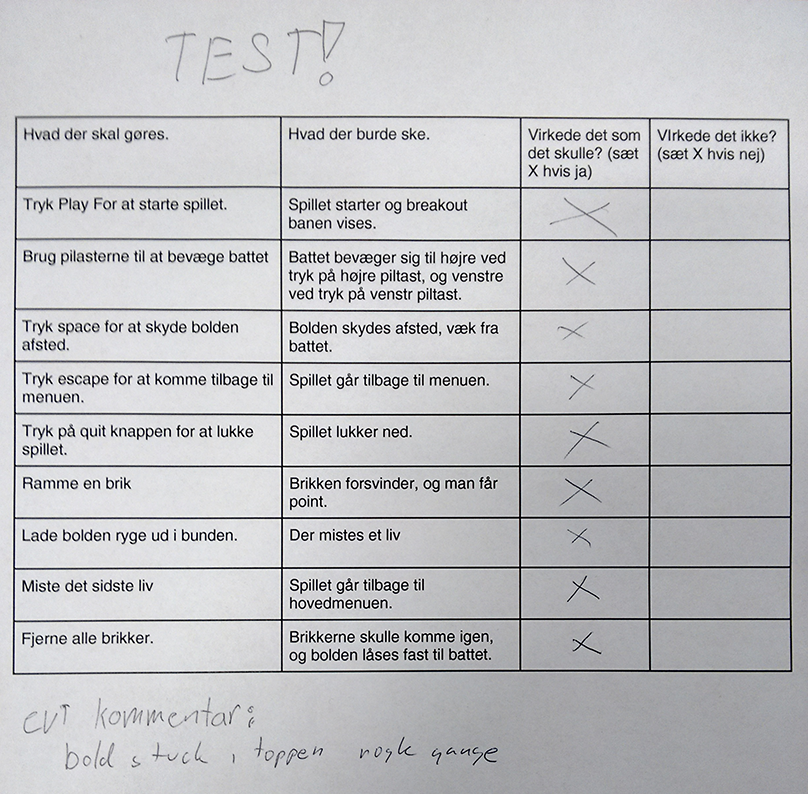 TEST!
Hvad der skal gøres.
Hvad der burde ske.
Virkede det som
det skulle? (sæt
X hvis ja)
VIrkede det ikke?
(sæt X hvis nej)
Tryk Play For at starte spillet.
Spillet starter og breakout
banen vises.
X
Brug pilasterne til at bevæge battet
Battet bevæger sig til højre ved
tryk på højre piltast, og venstre
ved tryk på venstr piltast.
X
Tryk space for at skyde bolden
afsted.
Bolden skydes afsted, væk fra
battet.
X
Tryk escape for at komme tilbage til
menuen.
Spillet går tilbage til menuen.
X
Tryk på quit knappen for at lukke
spillet.
Spillet lukker ned.
X
Ramme en brik
Brikken forsvinder, og man får
point.
X
Lade bolden ryge ud i bunden.
Der mistes et liv
X
Miste det sidste liv
Spillet går tilbage til
hovedmenuen.
X
Fjerne alle brikker.
Brikkerne skulle komme igen,
og bolden låses fast til battet.
X
evt kommentar:
bold stuck i toppen gange